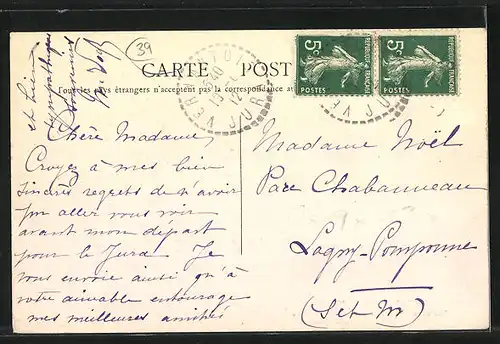 39
CARTE POST
Tous les pays étrangers n'acceptent pas la correspondance au
5c
POSTES
REPUBLIQUE FRANÇAISE
5c
POSTES
REPUBLIQUE FRANÇAISE
JURA
Chère Madame,
Croyez à mes bien
sincères regrets de n'avoir
pu aller vous voir
avant mon départ
pour le Jura. Je
vous envoie ainsi qu'à
votre aimable entourage
mes meilleures amitiés
et bien
sympathiques
Madame Noël
Parc Chabanneau
Lagny-Pomponne
(S et M)